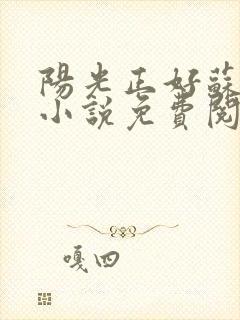 陽光正好蘇
小說免費閱
嘎四